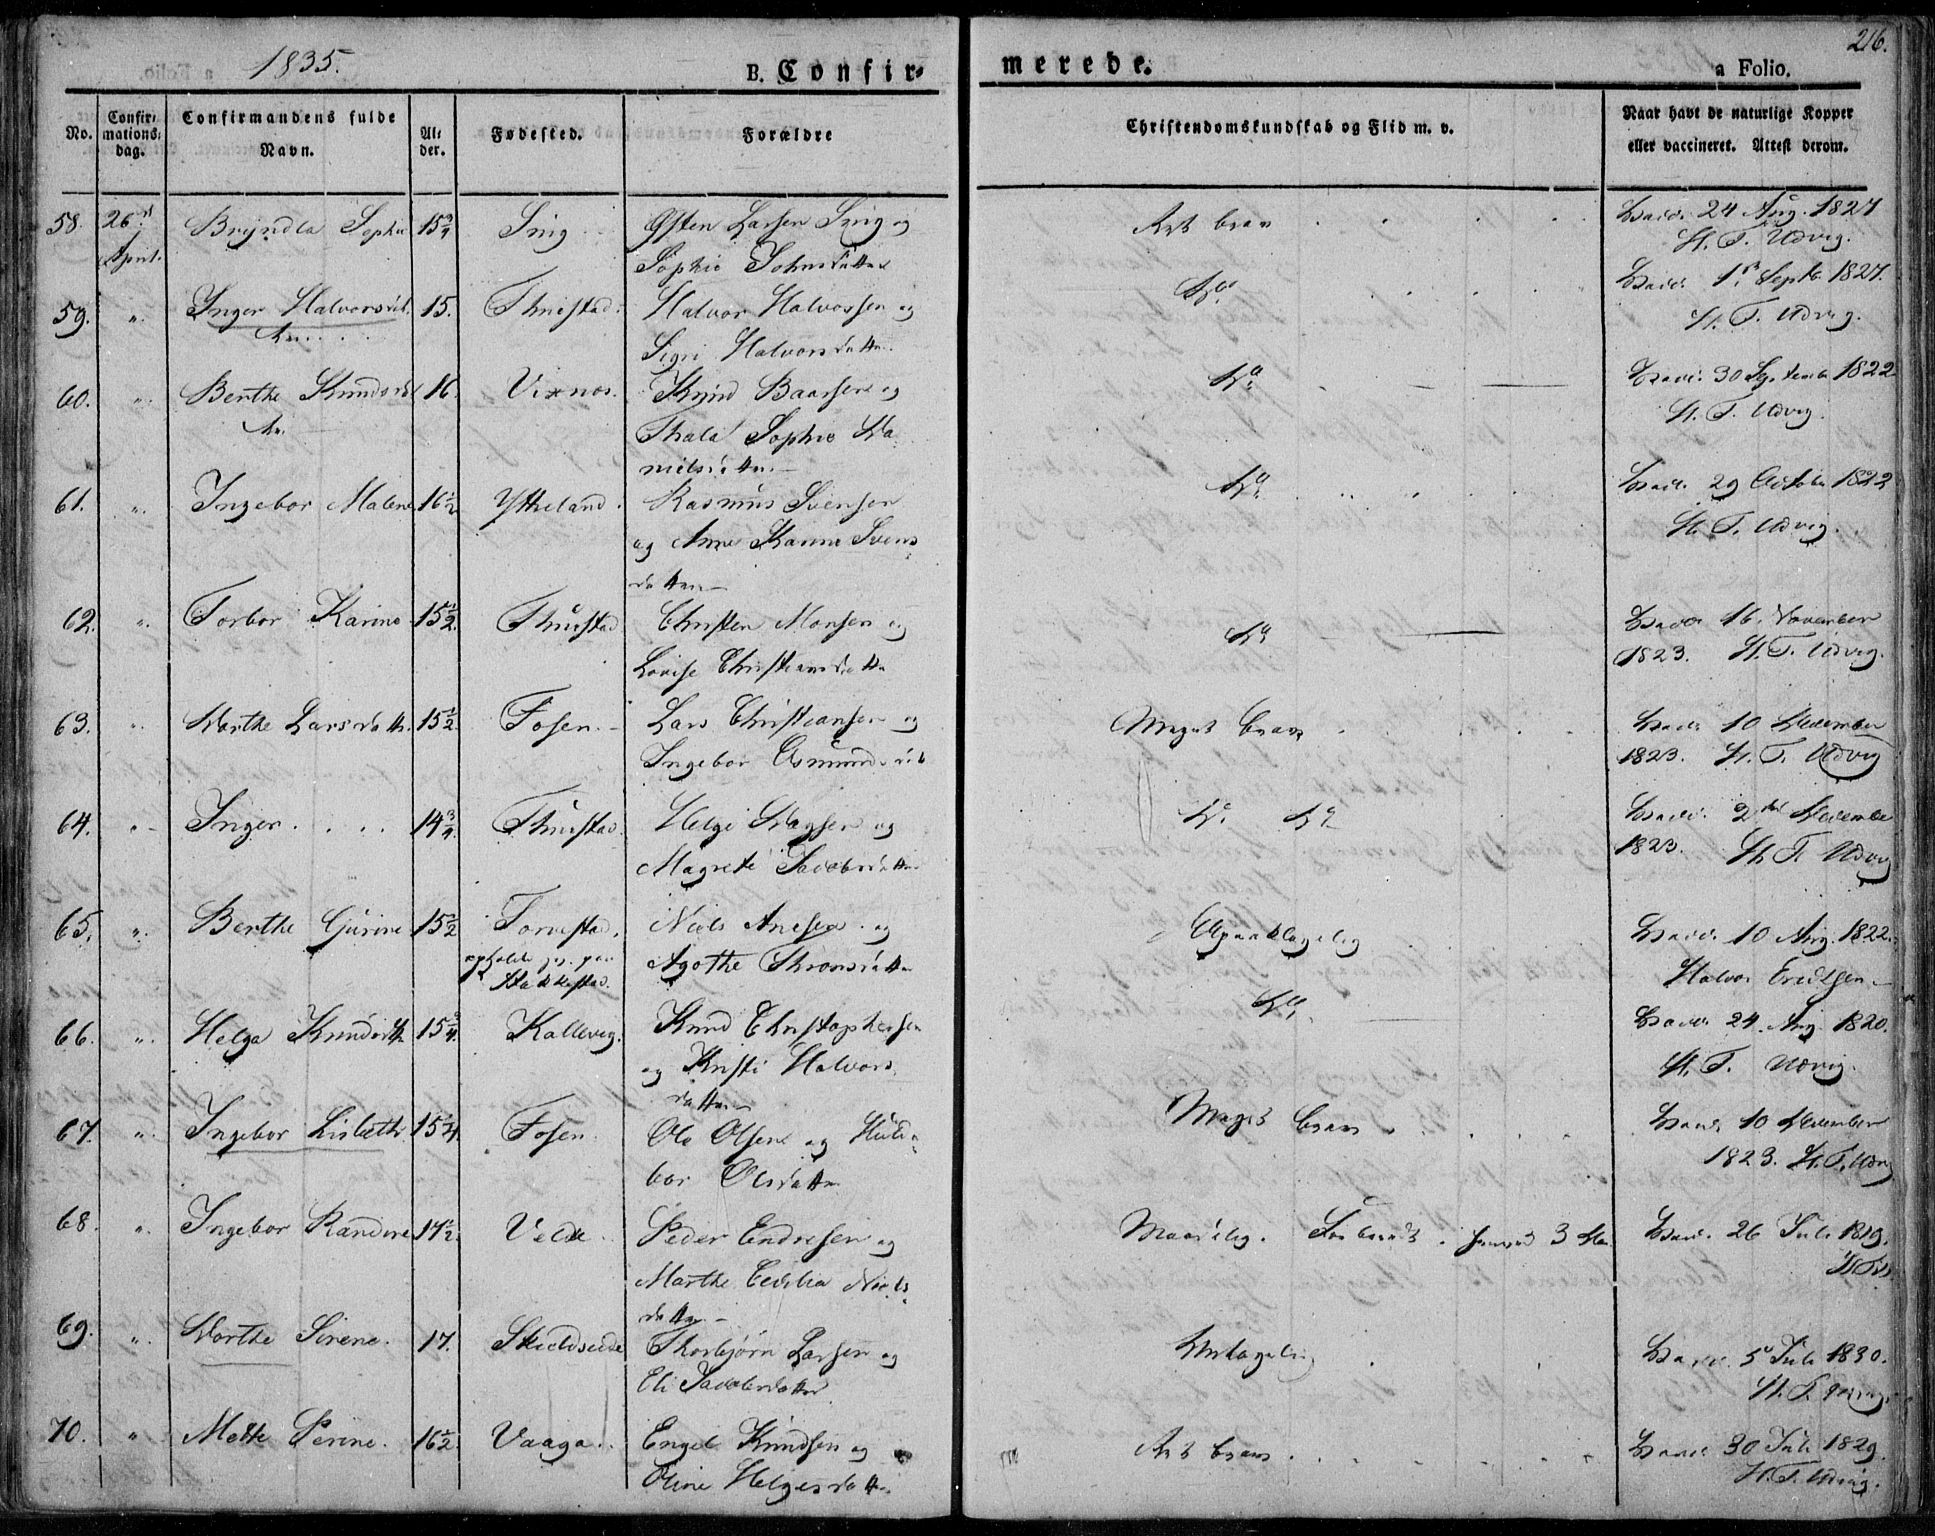 1835.
B. Confir-
merede.
216.
a Folio.
No.
Confir-
mations-
dag.
Confirmandens fulde
Navn.
Al-
der.
Fødested.
Forældre
Christendomskundskab og Flid m. v.
Naar havt de naturlige Kopper
eller vaccineret. Attest derom.
58. 26 Brÿndla Sophie 15¾ Østen Larsen og
April. Sophie Johnsdatter
Ret brav 24 Aug. 1827
H. T. Udvig.
59. " Inger Halvorsdat- 15. Thuestad. Halvor Halvorsen og
ter Sigri Halvorsdatter
Do 1ste Septb. 1827.
H. T. Udvig.
60. " Berthe Knudsdat- 16. Vixnes. Knud Baarsen og
ter Sophie Da-
nielsdatter
Do 30 September 1822
H. T. Udvig.
61. " Ingebor Malene 16½ Ytteland. Rasmus Svensen
og Anne Karine Svens-
datter
Do 29 October 1822
H. T. Udvig.
62. " Torbor Karine 15½ Thuestad Christen Monsen og
Lovise Christiansdatter
Do 16. November
1823. H. T. Udvig.
63. " Dorthe Larsdatter 15½ Fosen Lars Christiansen og
Ingebor Osmundsdat
Meget brav 10 December
1823. H. T. Udvig
64. " Inger 14¾ Thuestad. Helge Dagsen og
Magrete Jacobsdatter
Do Do 2den December
1823. H. T. Udvig
65. " Berthe Gurine 15½ Torvestad. Niels Anesen og
opholdt sig paa Agothe Thronsdatter
Stakkestad.
Upaaklagelig 10 Aug. 1822.
Halvor
66. " Helga Knudsdtr 15¾ Kallevig. Knud Christophersen
og Kristi Halvors-
datter
Do 24. Aug. 1820.
H. T. Udvig.
67. " Ingebor Lisbeth 15¼ Fosen. Ole Olsen og
bor Olsdatter
Meget brav 10 December
1823. H. T. Udvig
68. " Ingebor Randine 17½ Peder Endresen og
Marthe Cecilia Niels-
datter
Maadelig. 3 26 Juli 1819.
69. " Dorthe Sirene. 17. Thorbjørn Larsen og
Eli Jacobsdatter
5 Juli 1830.
H. T. Udvig
70. " Mette Serine. 16½ Vaaga. Engel Knudsen og
Oline Helgesdatter
Ret brav 30 Juli 1829.
H. T. Udvig.